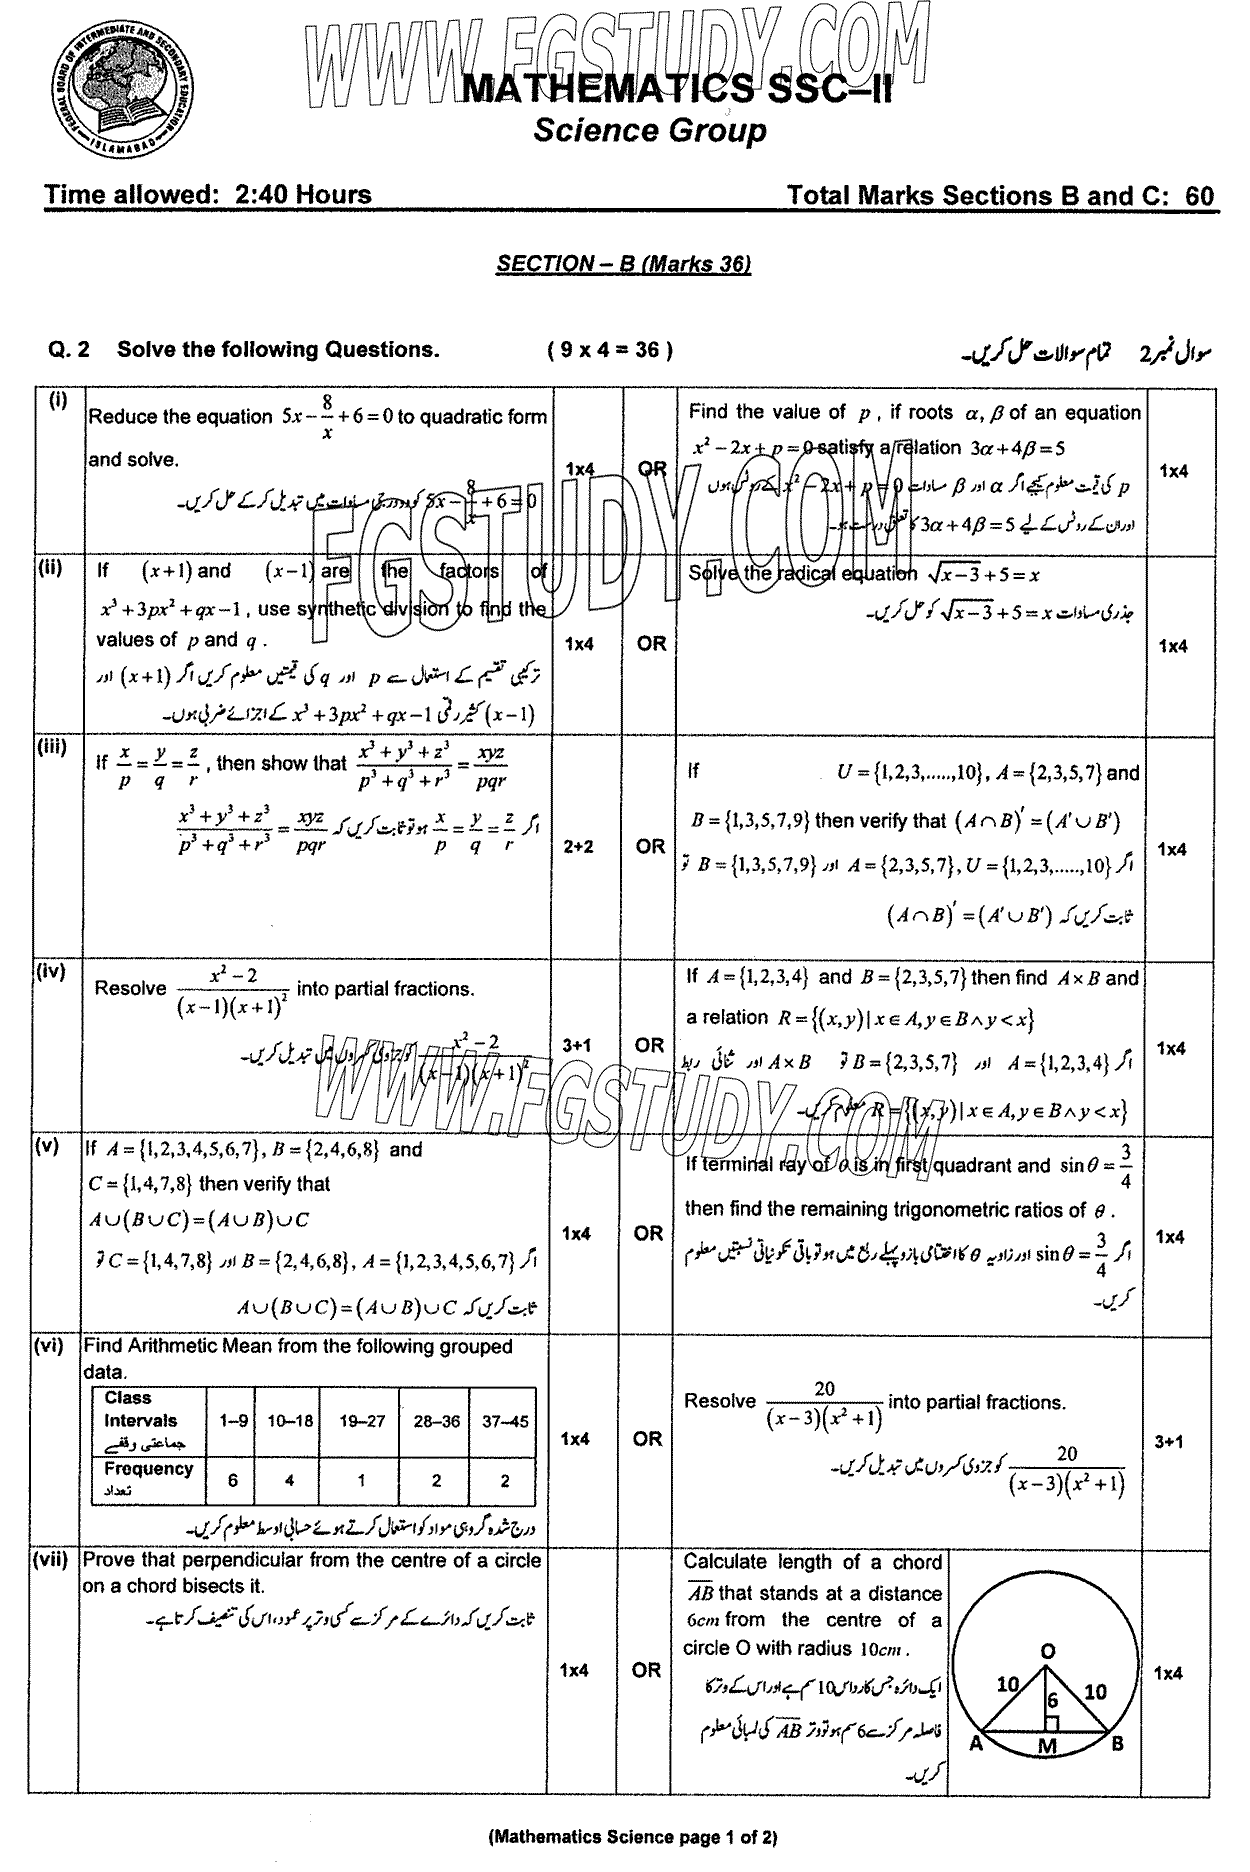 WWW.FGSTUDY.COM
FEDERAL BOARD OF INTERMEDIATE AND SECONDARY EDUCATION
ISLAMABAD
MATHEMATICS SSC–II
Science Group
Time allowed: 2:40 Hours
Total Marks Sections B and C: 60
SECTION – B (Marks 36)
Q. 2 Solve the following Questions. ( 9 x 4 = 36 )
سوال نمبر 2 تمام سوالات حل کریں۔
(i)
Reduce the equation 5x − 8/x + 6 = 0 to quadratic form
and solve.
5x − 8/x + 6 = 0 کو دو درجی مساوات میں تبدیل کر کے حل کریں۔
1x4
OR
Find the value of p , if roots α, β of an equation
x² − 2x + p = 0 satisfy a relation 3α + 4β = 5
p کی قیمت معلوم کیجیے اگر α اور β مساوات x² − 2x + p = 0 کے روٹس ہوں
اور ان کے روٹس کے لیے 3α + 4β = 5 کا تعلق درست ہو۔
1x4
(ii)
If (x+1) and (x−1) are the factors of
x³ + 3px² + qx − 1 , use synthetic division to find the
values of p and q .
ترکیبی تقسیم کے استعمال سے p اور q کی قیمتیں معلوم کریں اگر (x+1) اور
(x−1) کثیر رقمی x³ + 3px² + qx − 1 کے اجزائے ضربی ہوں۔
1x4
OR
Solve the radical equation √(x−3) + 5 = x
جذری مساوات √(x−3) + 5 = x کو حل کریں۔
1x4
(iii)
If x/p = y/q = z/r , then show that (x³ + y³ + z³)/(p³ + q³ + r³) = xyz/pqr
اگر x/p = y/q = z/r ہو تو ثابت کریں کہ (x³ + y³ + z³)/(p³ + q³ + r³) = xyz/pqr
2+2
OR
If U = {1,2,3,.....,10} , A = {2,3,5,7} and
B = {1,3,5,7,9} then verify that (A∩B)′ = (A′∪B′)
اگر U = {1,2,3,.....,10} , A = {2,3,5,7} اور B = {1,3,5,7,9} تو
ثابت کریں کہ (A∩B)′ = (A′∪B′)
1x4
(iv)
Resolve (x² − 2)/((x−1)(x+1)²) into partial fractions.
(x² − 2)/((x−1)(x+1)²) کو جزوی کسروں میں تبدیل کریں۔
3+1
OR
If A = {1,2,3,4} and B = {2,3,5,7} then find A×B and
a relation R = {(x,y) | x∈A, y∈B ∧ y<x}
اگر A = {1,2,3,4} اور B = {2,3,5,7} تو A×B اور ثنائی ربط
R = {(x,y) | x∈A, y∈B ∧ y<x} معلوم کریں۔
1x4
(v)
If A = {1,2,3,4,5,6,7} , B = {2,4,6,8} and
C = {1,4,7,8} then verify that
A∪(B∪C) = (A∪B)∪C
اگر A = {1,2,3,4,5,6,7} , B = {2,4,6,8} اور C = {1,4,7,8} تو
ثابت کریں کہ A∪(B∪C) = (A∪B)∪C
1x4
OR
If terminal ray of θ is in first quadrant and sinθ = 3/4
then find the remaining trigonometric ratios of θ .
اگر sinθ = 3/4 اور زاویہ θ کا اختتامی بازو پہلے ربع میں ہو تو باقی تکونیاتی نسبتیں معلوم
کریں۔
1x4
(vi)
Find Arithmetic Mean from the following grouped
data.
Class Intervals جماعتی وقفے 1–9 10–18 19–27 28–36 37–45
Frequency تعداد 6 4 1 2 2
درج شدہ گروہی مواد کو استعمال کرتے ہوئے حسابی اوسط معلوم کریں۔
1x4
OR
Resolve 20/((x−3)(x²+1)) into partial fractions.
20/((x−3)(x²+1)) کو جزوی کسروں میں تبدیل کریں۔
3+1
(vii)
Prove that perpendicular from the centre of a circle
on a chord bisects it.
ثابت کریں کہ دائرے کے مرکز سے کسی وتر پر عمود، اس کی تنصیف کرتا ہے۔
1x4
OR
Calculate length of a chord
A̅B̅ that stands at a distance
6cm from the centre of a
circle O with radius 10cm .
ایک دائرہ جس کا رداس 10 سم ہے اور اس کے وتر کا
فاصلہ مرکز سے 6 سم ہو تو وتر A̅B̅ کی لمبائی معلوم
کریں۔
O
10
6
10
A
M
B
1x4
FGSTUDY.COM
WWW.FGSTUDY.COM
(Mathematics Science page 1 of 2)